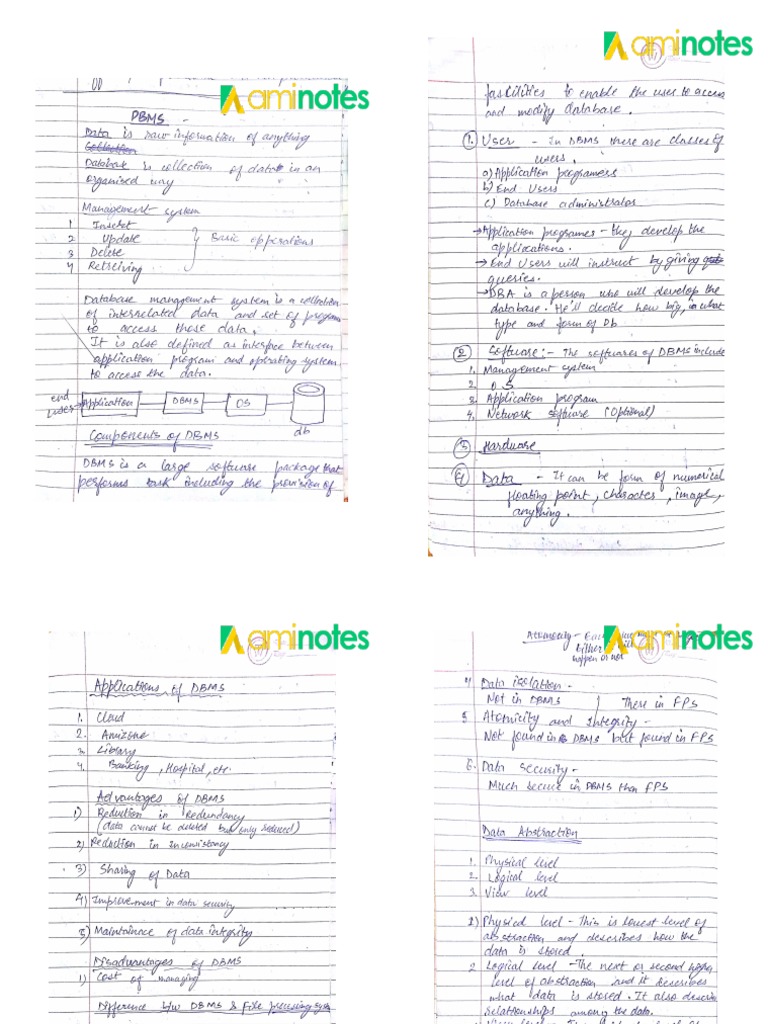 aminotes
DBMS -
Data is raw information of anything
Collection
Database is collection of data in an
organised way
Management system
1 Insert
2 Update
3 Delete
4 Retreiving
Basic opperations
Database management system is a collection
of interrelated data and set of program
to access those data.
It is also defined as interface between
application program and operating system
to access the data.
end users
Application
DBMS
OS
db
Components of DBMS
DBMS is a large software package that
performs task including the provision of
aminotes
facilities to enable the user to access
and modify database.
1. User - In DBMS there are classes of
users.
a) Application programess
b) End Users
c) Database administrator
→ Application programes - they develop the
applications.
→ End Users will instruct by giving
queries.
→ DBA is a person who will develop the
database. He'll decide how big, in what
type and form of Db
2. Software :- The softwares of DBMS include
1. Management system
2. O.S
3. Application program
4. Network software (Optional)
3 Hardware
4 Data - It can be form of numerical
floating point, character, image,
anything.
aminotes
Applications of DBMS
1. Cloud
2. Amizone
3. Library
4. Banking, Hospital, etc.
Advantages of DBMS
1) Reduction in Redundancy
(data cannot be deleted but only reduced)
2) Reduction in Inconsistancy
3) Sharing of Data
4) Improvement in data security
5) Maintaince of data integrity
Disadvantages of DBMS
1) Cost of managing
Difference b/w DBMS & File processing system
aminotes
Atomicity -
happen or not
4 Data isolation -
Not in DBMS
There in FPS
5. Atomicity and Integrity -
Not found in DBMS but found in FPS
6. Data security -
Much secure in DBMS than FPS
Data Abstraction
1. Physical level
2. Logical level
3. View level
1) Physical level - This is lowest level of
abstraction and describes how the
data is stored.
2 Logical level - The next or second higher
level of abstraction and it describes
what data is stored. It also describe
relationships among the data.